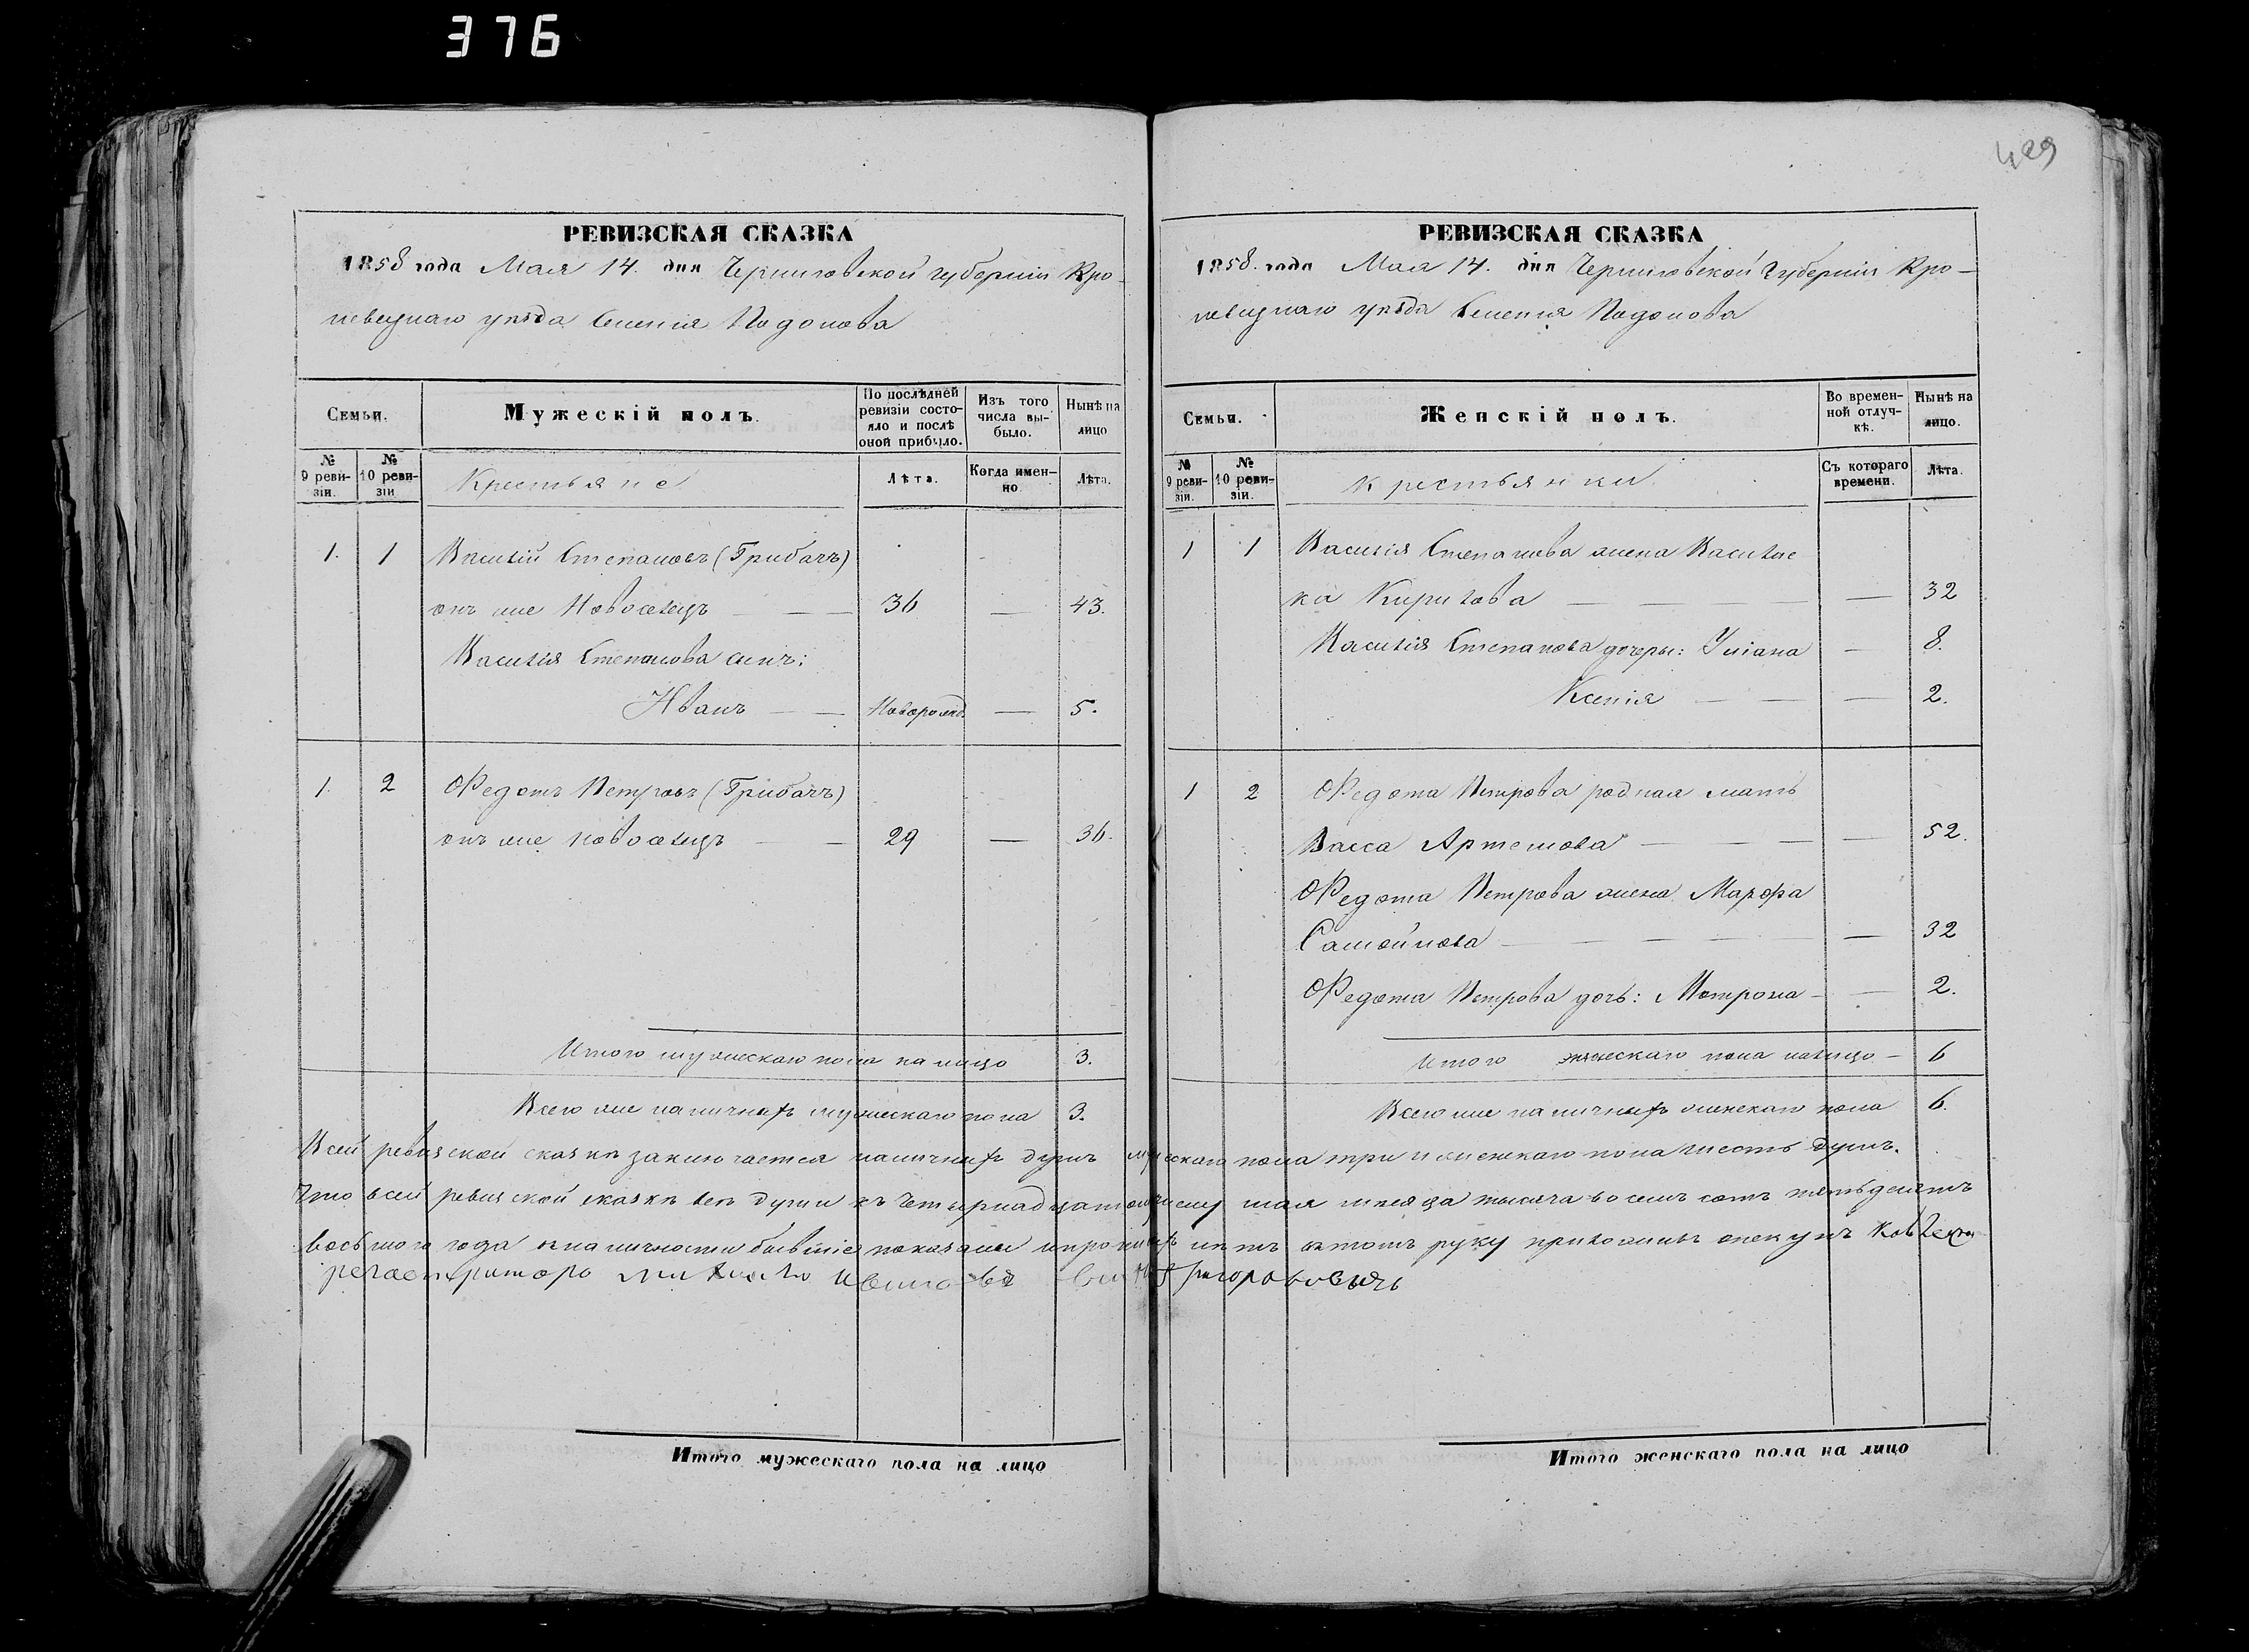 376
429
РЕВИЗСКАЯ СКАЗКА
1858 года Мая 14. дня Черниговской губерніи Кро-
левецкаго уѣзда Селенія Подолова
Семьи.
Мужескій полъ.
По послѣдней ревизіи состояло и послѣ оной прибыло.
Изъ того числа выбыло.
Нынѣ на лицо
№ 9 ревизіи.
№ 10 ревизіи
Крестьяне
Лѣта.
Когда именно.
Лѣта.
1. 1 Василій Степановъ (Грибачъ)
онъ же Новоселецъ — — 36 — 43.
Василія Степанова сынъ:
Иванъ — — Новорожд. — 5.
1. 2 Федотъ Петровъ (Грибачъ)
онъ же Новоселецъ — — 29 — 36.
Итого мужескаго пола на лицо 3.
Всего же наличныхъ мужескаго пола 3.
РЕВИЗСКАЯ СКАЗКА
1858. года Мая 14. дня Черниговской Губерніи Кро-
левецкаго уѣзда Селенія Подолова
Семьи.
Женскій полъ.
Во временной отлучкѣ.
Нынѣ на лицо.
№ 9 ревизіи.
№ 10 ревизіи.
Крестьянки
Съ котораго времени.
Лѣта.
1 1 Василія Степанова жена Василис
ка Кирилова — — — — — 32
Василія Степанова дочеры: Уліана — 8.
Ксенія — — — 2.
1 2 Федота Петрова родная мать
Васса Артемова — — — — 52.
Федота Петрова жена Марфа
Самойлова — — — — — 32
Федота Петрова дочь: Мотрона — — 2.
Итого женескаго пола налицо — 6
Всего же наличныхъ женскаго пола 6.
Всей ревизской сказкѣ заключается наличныхъ душъ мужескаго пола три и женскаго пола шесть душъ.
Что всей ревизской сказкѣ всѣ души къ четырнадцатому числу мая мѣсяца тысяча восемъ сотъ пятьдесятъ
восьмого года въ наличности бывшіе показаны и прописныхъ нѣтъ въ томъ руку приложилъ опекунъ
регистраторъ
Итого мужескаго пола на лицо
Итого женскаго пола на лицо